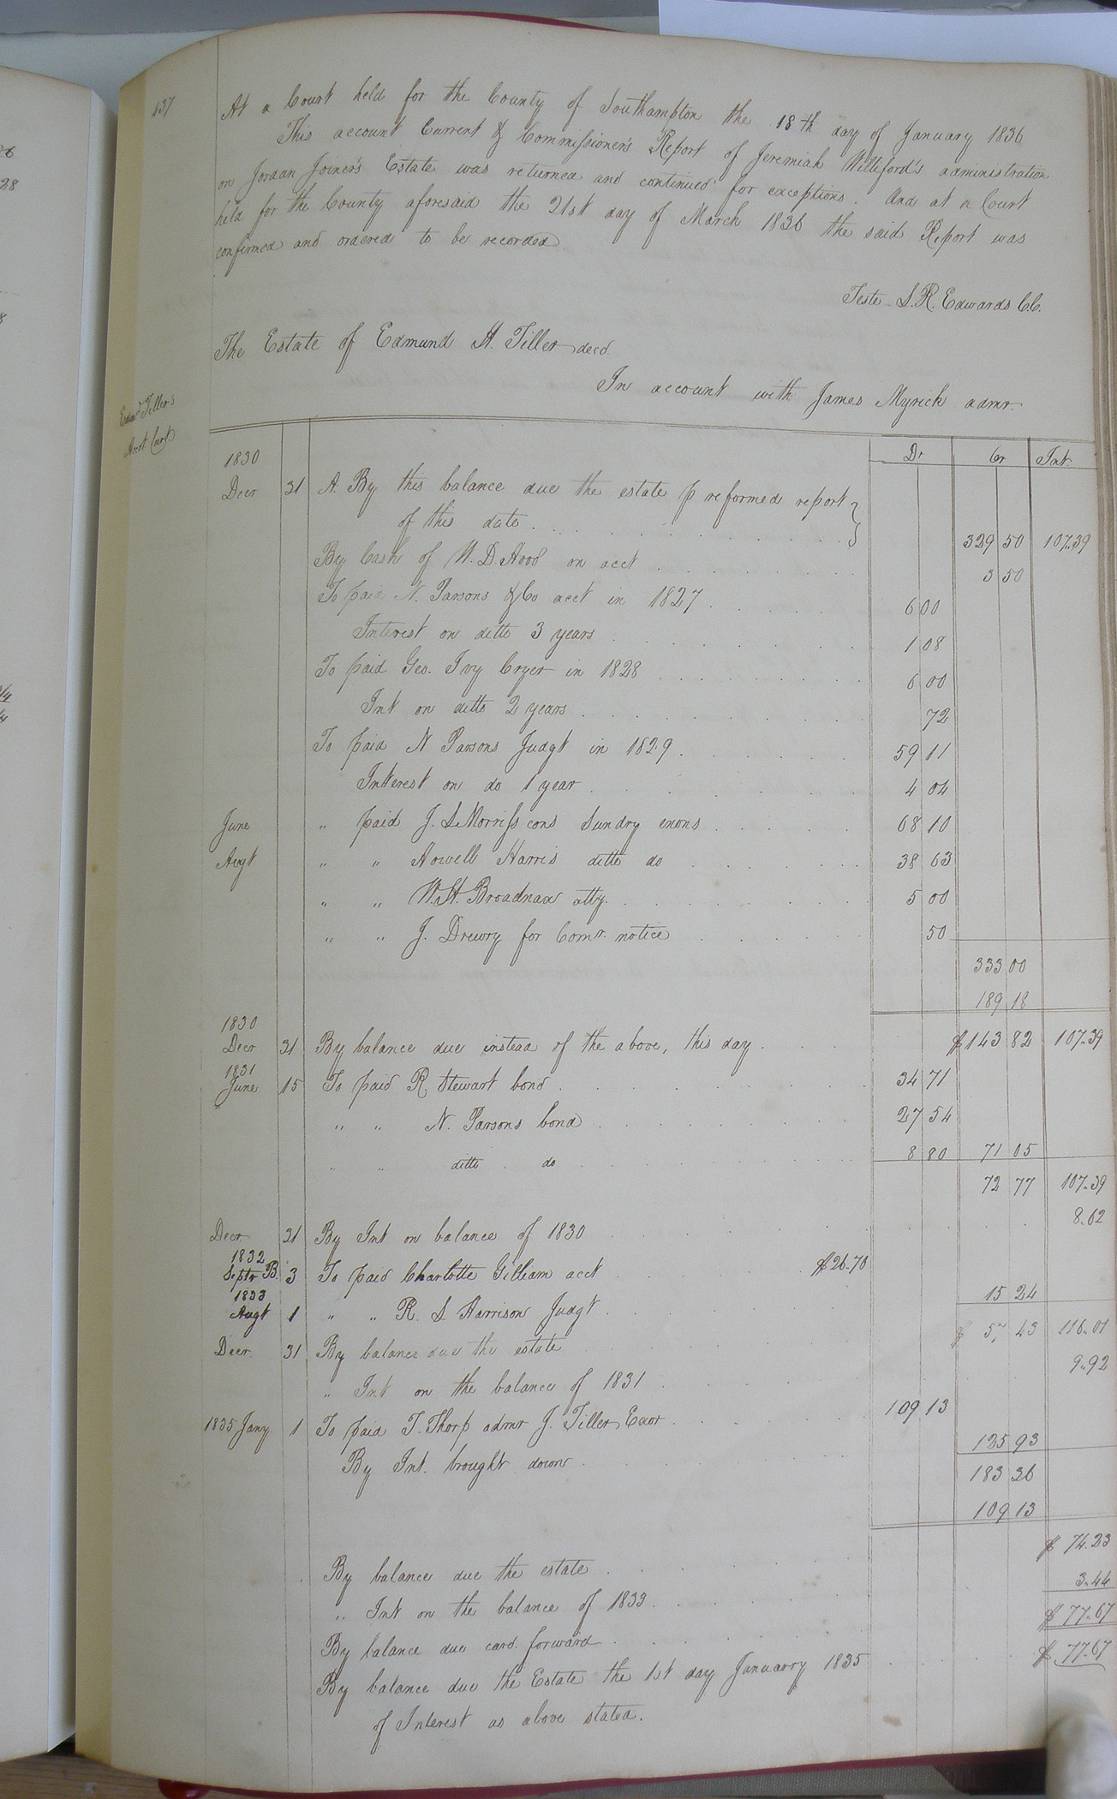 137
At a Court held for the County of Southampton the 18th day of January 1836
This account Current & Commissioners Report of Jeremiah Williford's administration
on Jordan Joiner's Estate was returned and continued for exceptions. And at a Court
held for the County aforesaid the 21st day of March 1836 the said Report was
confirmed and ordered to be recorded
Teste S. R. Edwards C.C.
The Estate of Edmund H. Tiller decd.
In account with James Myrick admr.
Edmd Tiller's
Acct Curt
Dr Cr Int.
1830
Decr 31 A. By this balance due the estate p reformed report
of this date 329 50 107.39
By Cash of W. D. Hood on acct 3 50
To paid N. Parsons & Co acct in 1827 6 00
Interest on ditto 3 years 1 08
To paid Geo. Ivy Cryer in 1828 6 00
Int on ditto 2 years 72
To paid N Parsons Judgt in 1829 59 11
Interest on do 1 year 4 04
June " paid J. S. Morriss cons Sundry exons 68 10
Augt " " Howell Harris ditto do 38 63
" " W. H. Broadnax atty. 5 00
" " J. Drewry for Comr. notice 50
333 00
189 18
1830
Decr 31 By balance due instead of the above, this day $143 82 107.39
1831
June 15 To paid R Stewart bond 34 71
" " N. Parsons bond 27 54
" " ditto do 8 80 71 05
72 77 107.39
Decr 31 By Int on balance of 1830 8.62
1832
Septr B. 3 To paid Charlotte Gilliam acct $26.70
1833
Augt 1 " " R. S. Harrison Judgt 15 24
Decr 31 By balance due the estate $ 57 43 116.01
" Int on the balance of 1831 9.92
1835 Jany 1 To paid T. Thorp admr J. Tiller Exor 109 13
By Int. brought down 125 93
183 36
109 13
By balance due the estate $ 74.23
" Int on the balance of 1833 3.44
By balance due card. forward $ 77.67
By balance due the Estate the 1st day January 1835 $ 77.67
of Interest as above stated.